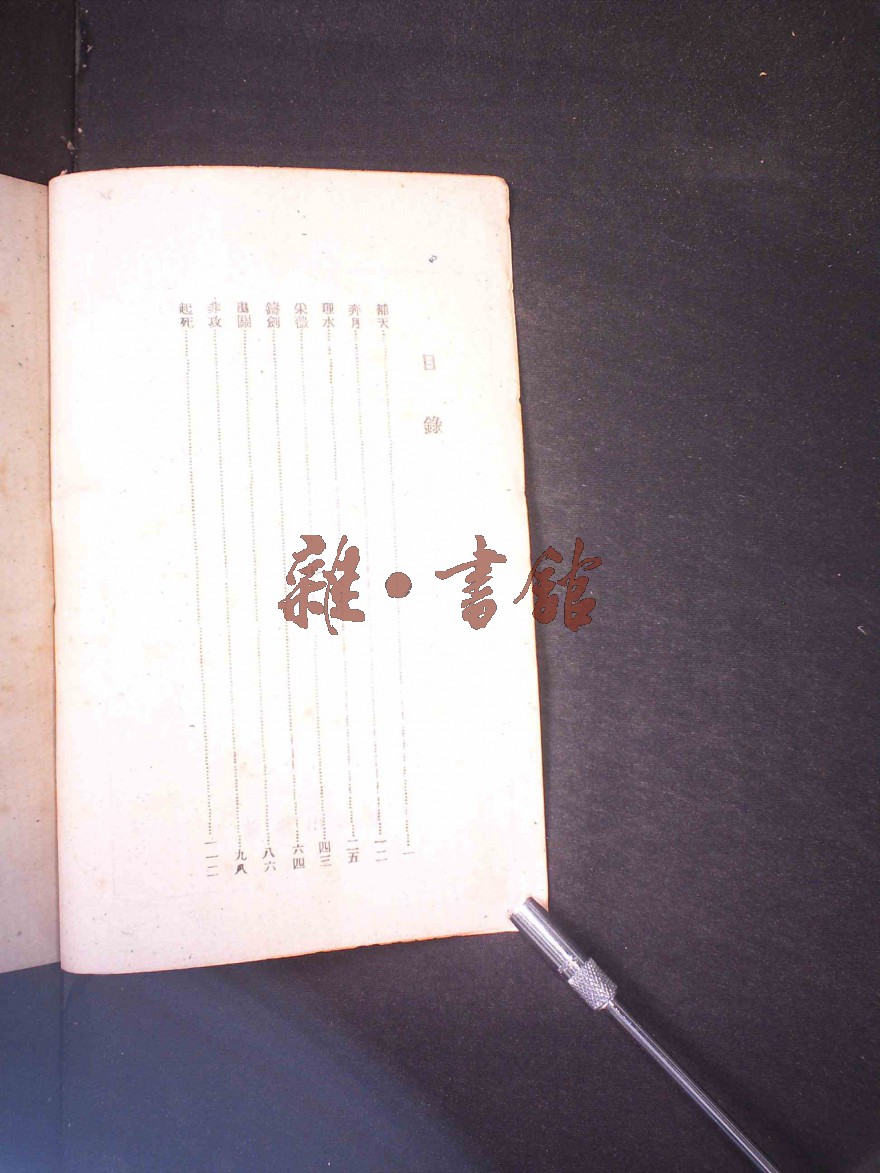 目錄
補天……一
奔月……一二
理水……二五
采薇……四三
鑄劍……六四
出關……八六
非攻……九八
起死……一一二
雜·書館